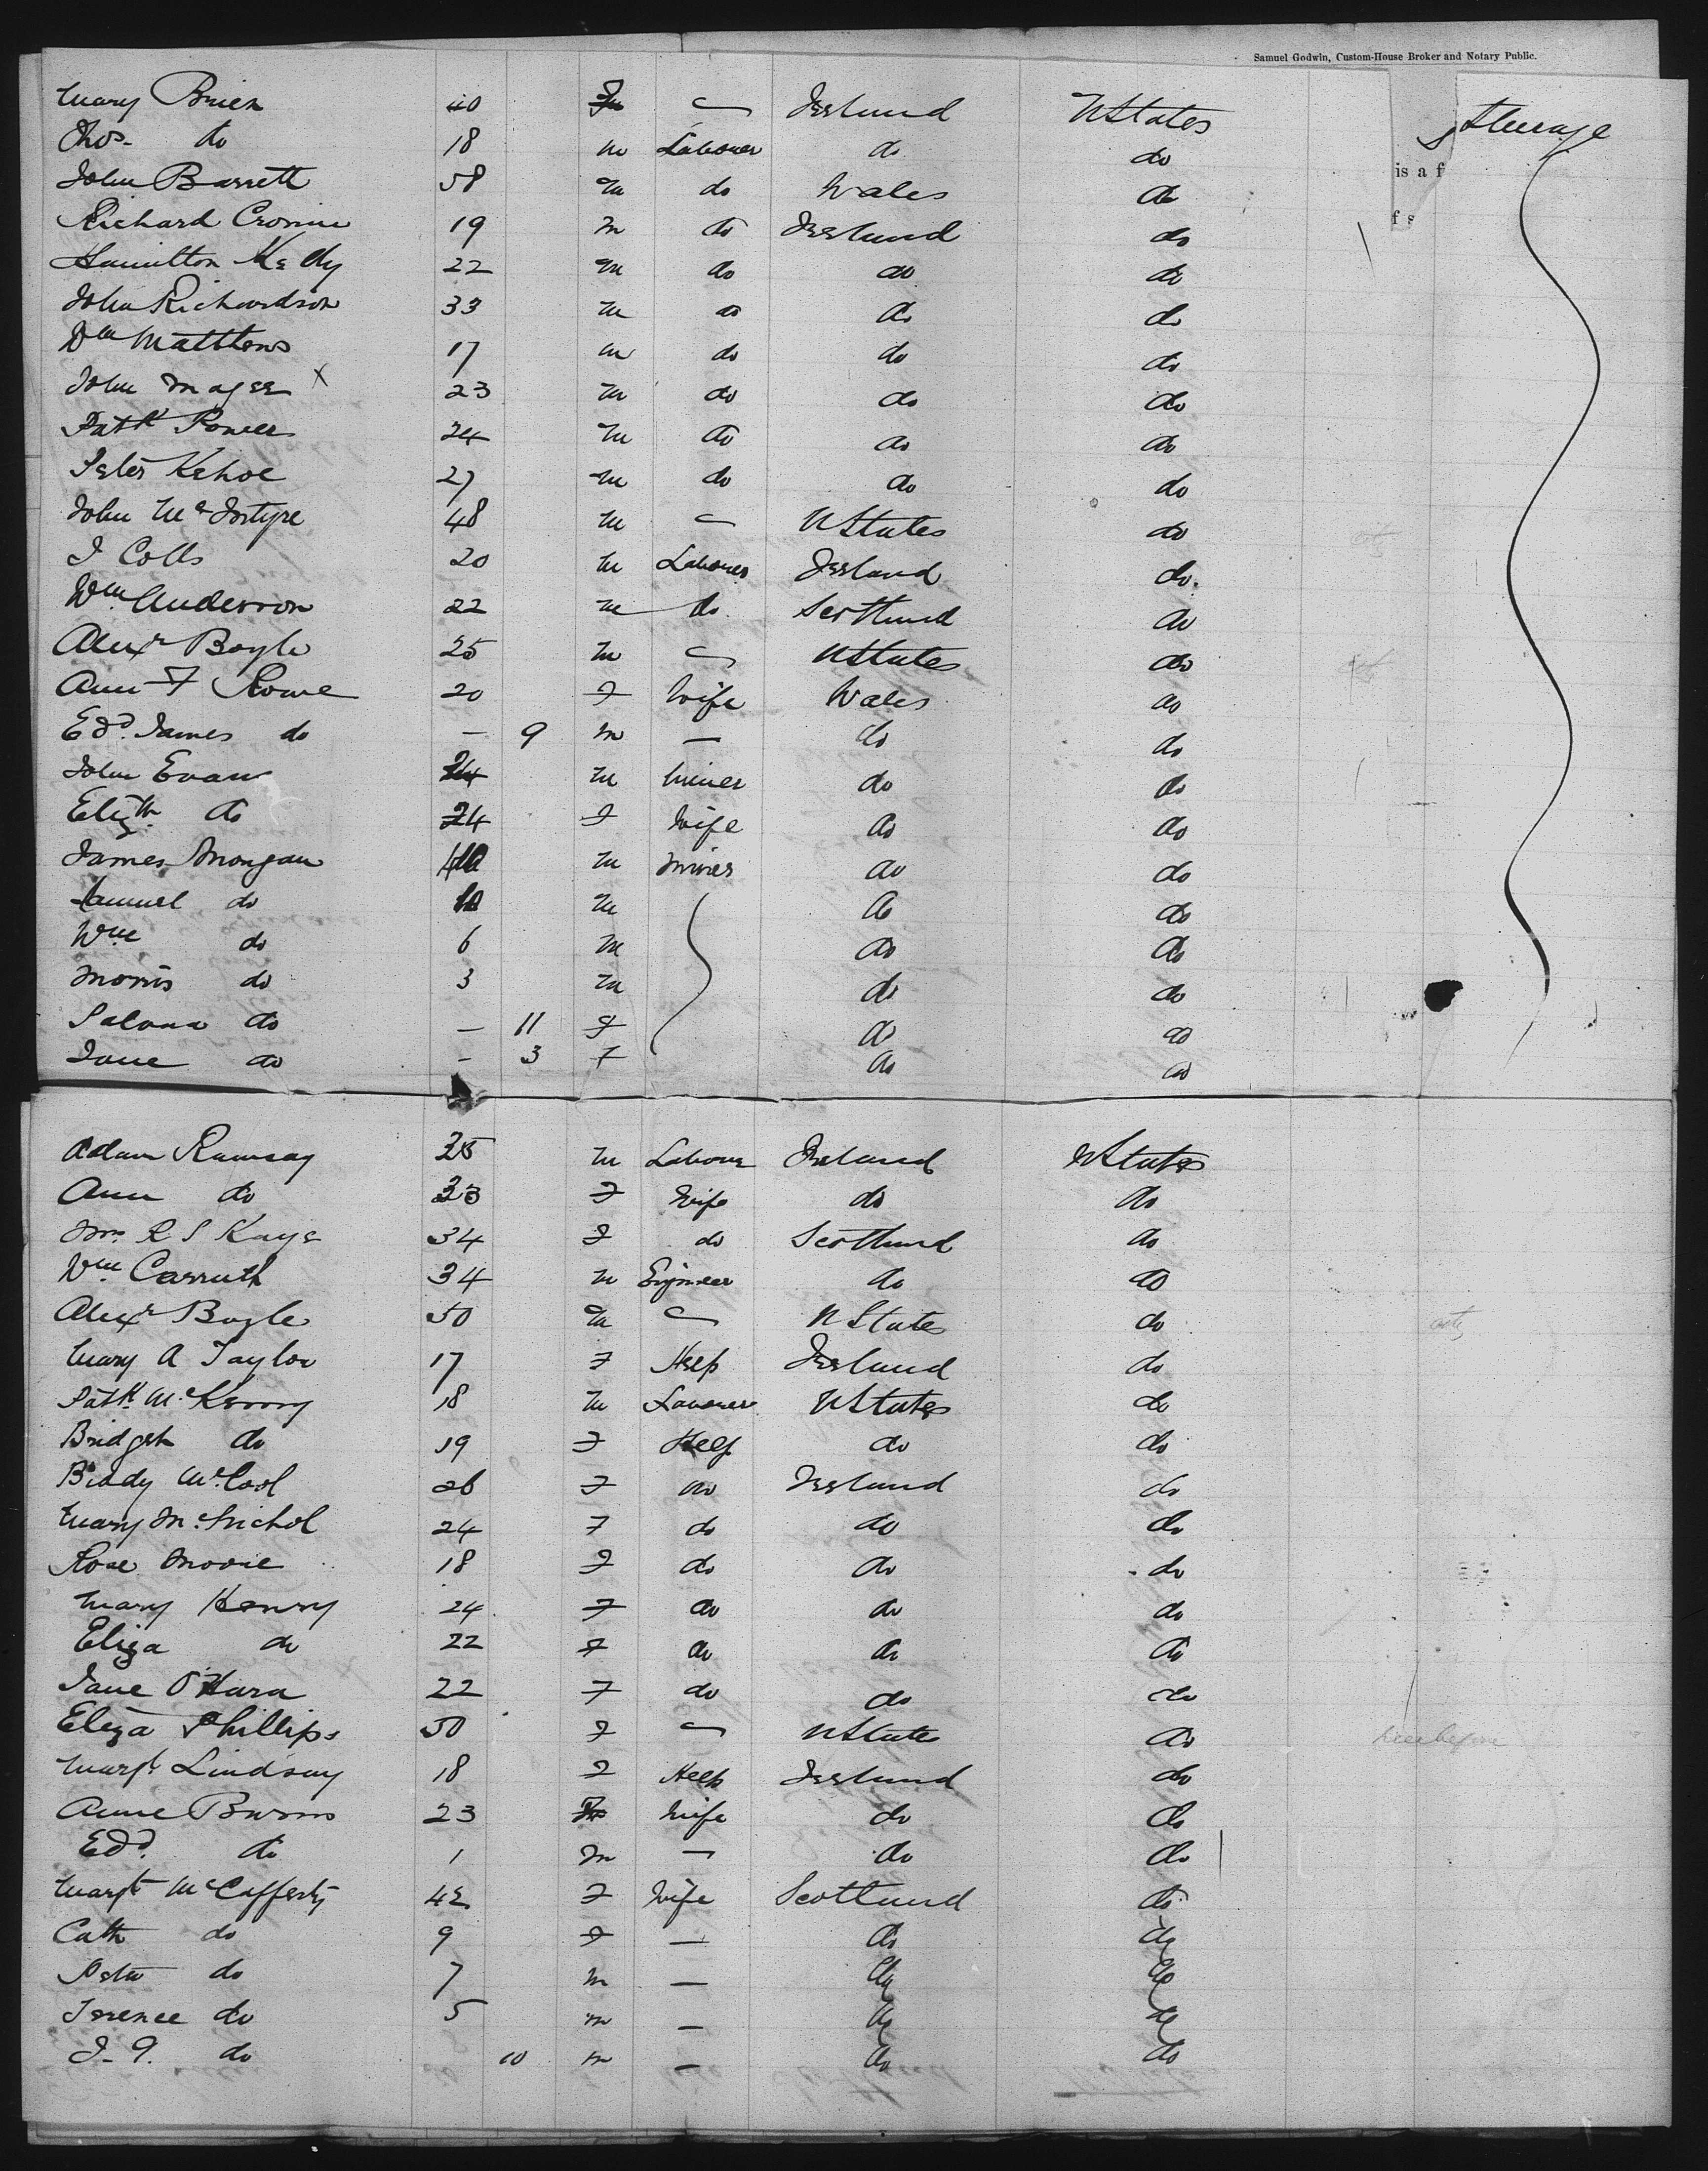 Samuel Godwin, Custom-House Broker and Notary Public.
Mary Brien 40 F — Ireland UStates Steerage
Thos. do 18 m Labourer do do
is a f
John Barrett 58 m do Wales do
f s
Richard Cronin 19 m do Ireland do
Hamilton Kelly 22 m do do do
John Richardson 33 m do do do
Wm Matthews 17 m do do do
John Magee x 23 m do do do
Patk Power 24 m do do do
Peter Kehoe 27 m do do do
John McIntyre 48 m — UStates do
J Colls 20 m Labourer Ireland do.
Wm Anderson 22 m do Scotland do
Alexr Boyle 25 m — UStates do
Ann F Rowe 20 F Wife Wales do
Edd. James do — 9 m — do do
John Evans 24 m Miner do do
Elizth do 24 F Wife do do
James Morgan 40 m Miner do do
Samuel do 10 m do do
Wm do 6 m do do
Morris do 3 m do do
do — 11 F do do
Jane do - 3 F do do
Adam Ramsay 35 m Labourer Ireland UStates
Ann do 33 F Wife do do
Mrs R S Kaye 34 F do Scotland do
Wm Carruth 34 m Engineer do do
Alexr Bogle 50 m — UStates do
Mary A Taylor 17 F Help Ireland do
Patk. McKenny 18 m Labourer UStates do
Bridget do 19 F Help do do
Biddy McCool 26 F do Ireland do
Mary McNichol 24 F do do do
Rose Moore 18 F do do do
Mary Henry 24 F do do do
Eliza do 22 F do do do
Jane O'Hara 22 F do do do
Eliza Phillips 50 F — UStates do
Margt Lindsay 18 F Help Ireland do
Anne Burns 23 F Wife do do
Edd. do 1 m — do do
Margt McCafferty 42 F Wife Scotland do
Cath do 9 F — do do
Peter do 7 m — do do
Terence do 5 m — do do
J. do 10 m — do do